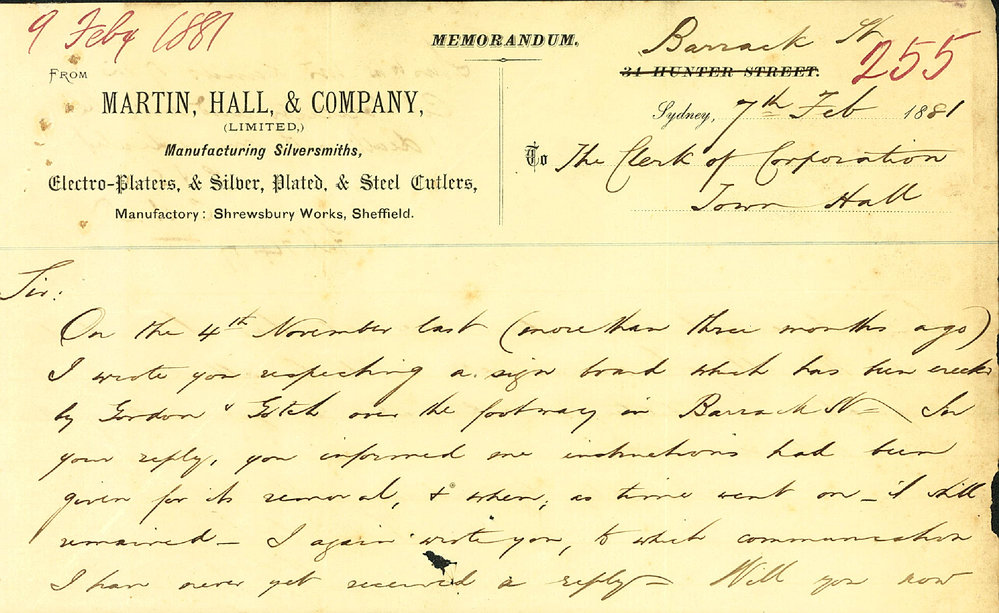 9 Feby 1881
MEMORANDUM.
Barrack St
255
34 HUNTER STREET.
FROM
MARTIN, HALL, & COMPANY,
(LIMITED,)
Manufacturing Silversmiths,
Electro-Platers, & Silver, Plated, & Steel Cutlers,
Manufactory: Shrewsbury Works, Sheffield.
Sydney, 7th Feb 1881
To The Clerk of Corporation
Town Hall
Sir:
On the 4th November last (more than three months ago)
I wrote you respecting a sign board which has been erected
by Gordon & Gotch over the footway in Barrack St – In
your reply, you informed me instructions had been
given for its removal, & when, as time went on – it still
remained – I again wrote you, to which communication
I have never yet received a reply – Will you now